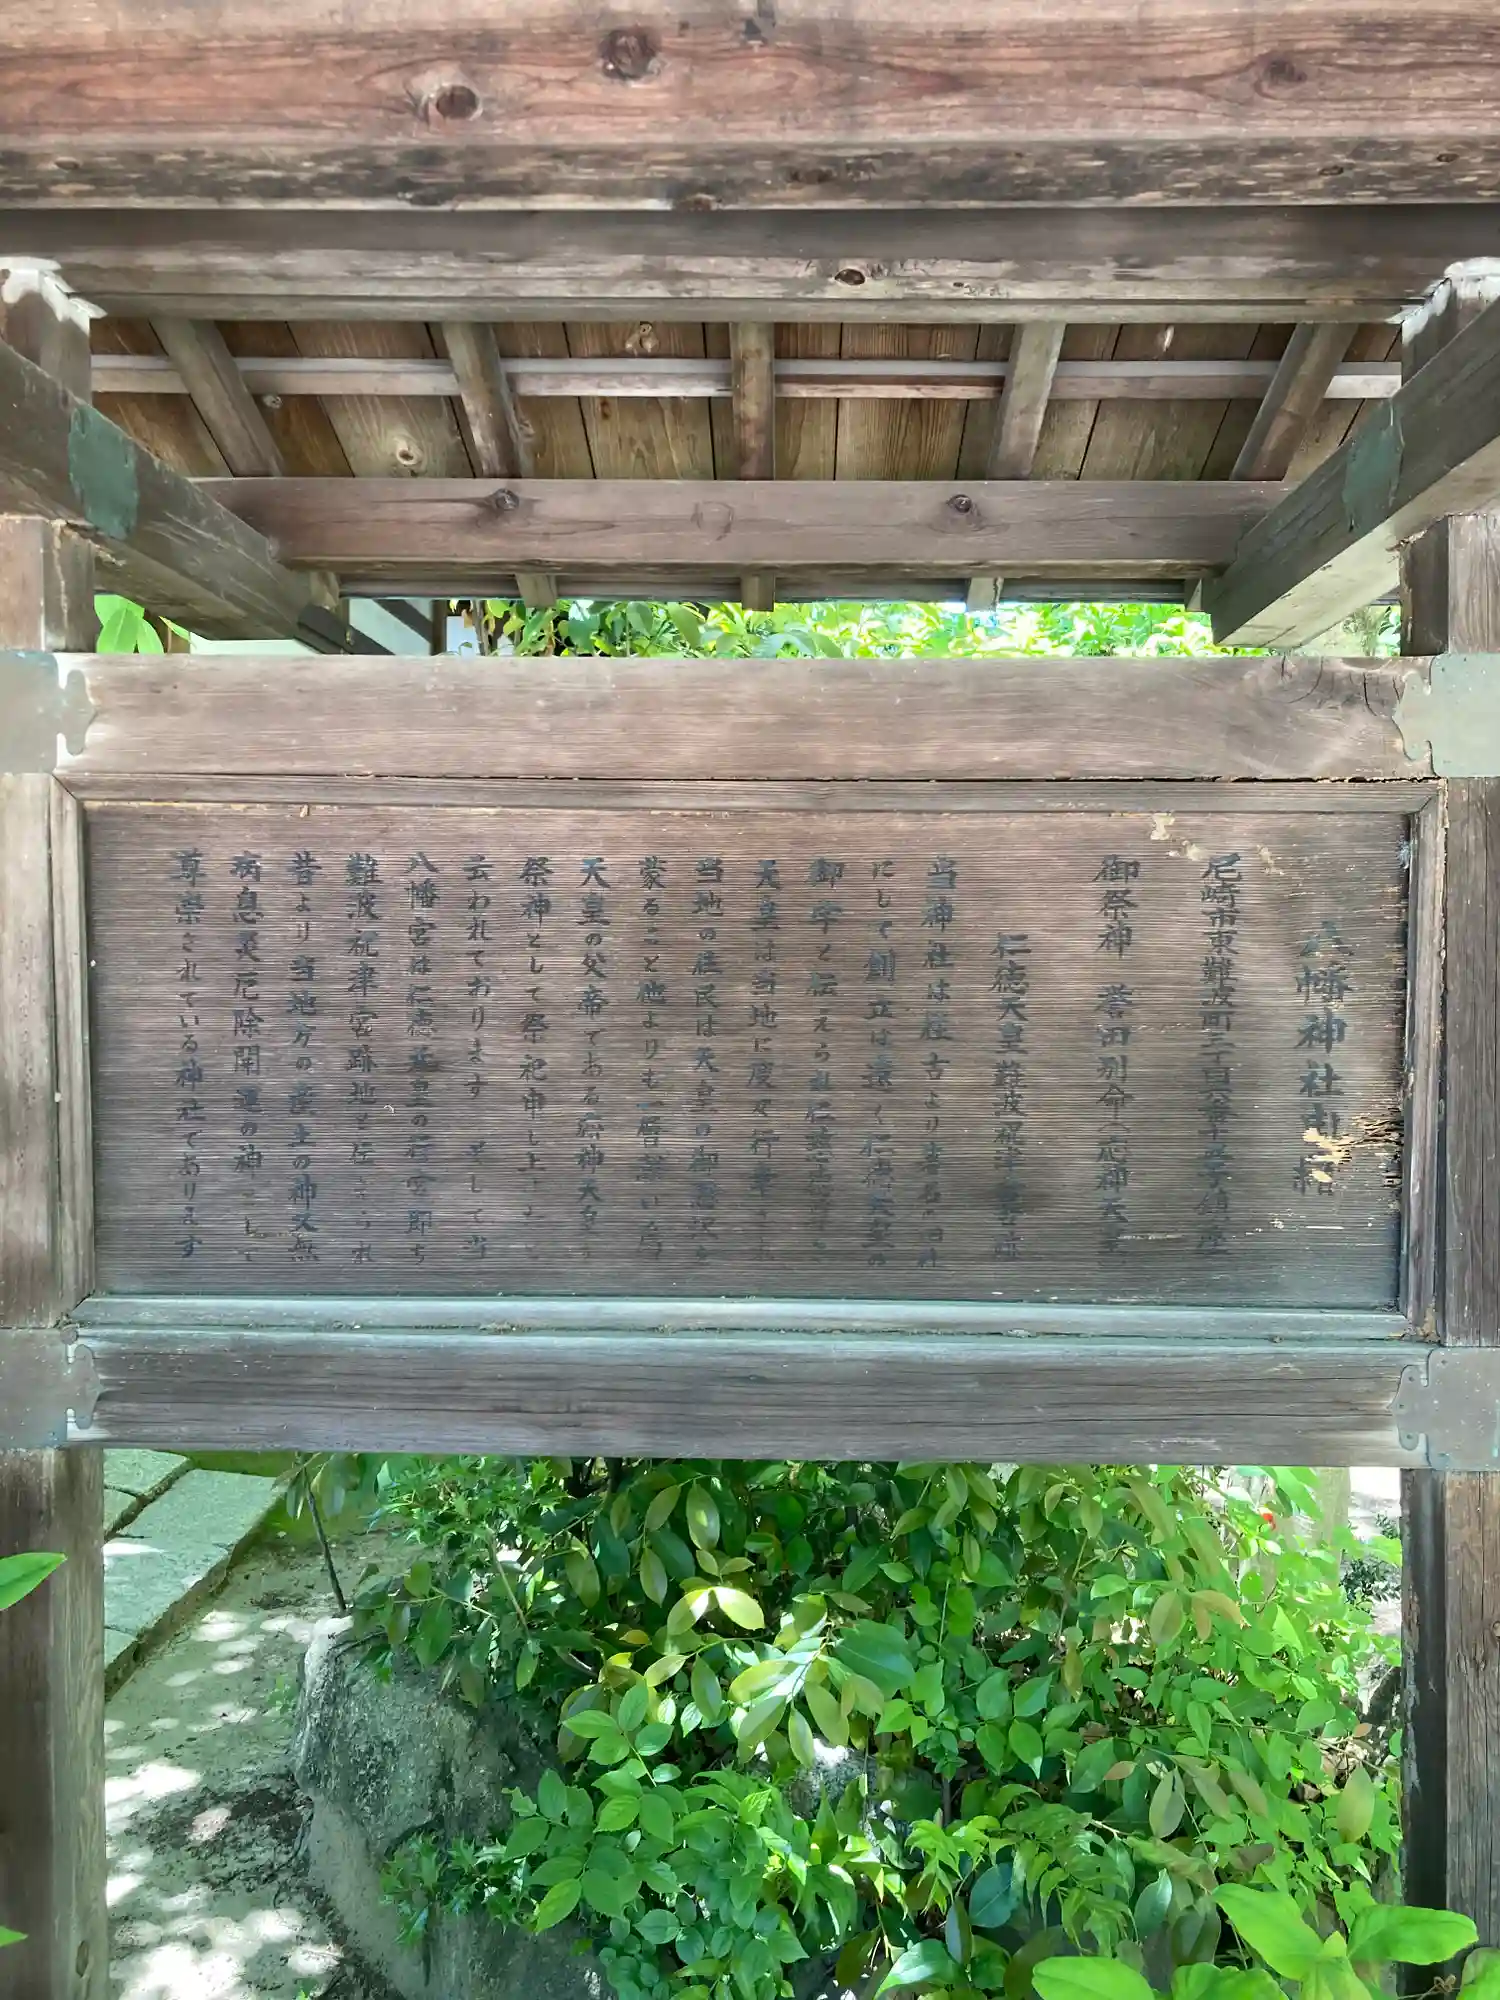 八幡神社由緒
尼崎市東難波町 鎮座
御祭神 誉田別命(応神天皇
仁徳天皇難波祝津宮
当神社は往古より著名 古社
にして創立は遠く仁徳天皇の
御宇と伝えられ仁徳
天皇は当地に度々行幸
当地の住民は天皇の御恩沢を
蒙ること他よりも一層深い為
天皇の父帝である応神天皇を
祭神として祭祀申し上
云われております そして当
八幡宮は仁徳天皇の行宮即ち
難波祝津宮跡地と伝えられ
昔より当地方の産土の神又無
病息災厄除開運の神として
尊崇されている神社であります